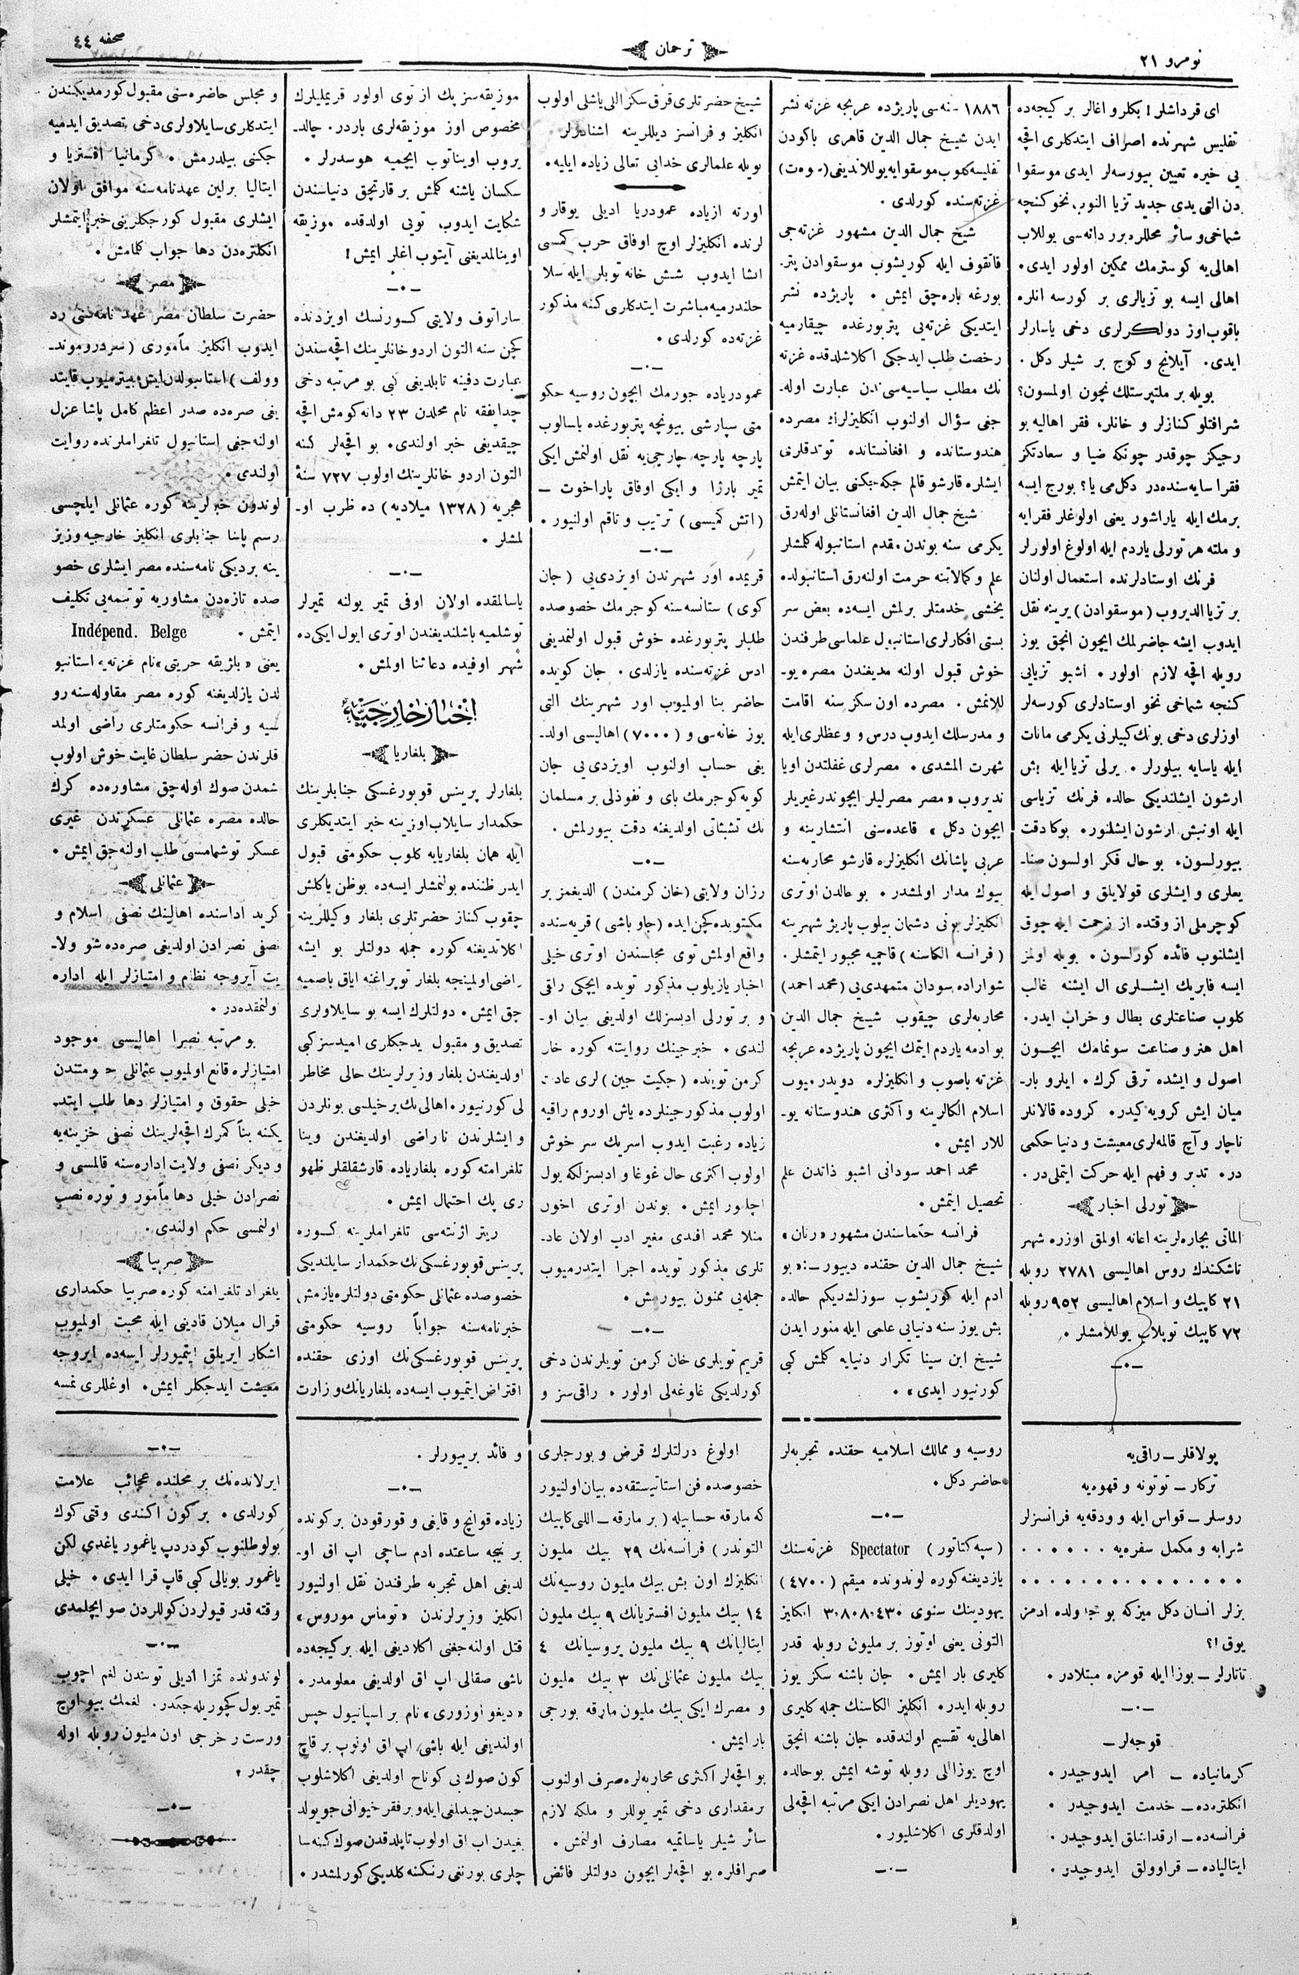 نومرو ٢١
ترجمان
صحفه ٤٤
ای قرداشلر! بكلر و اغالر بر كیجه‌ده
تفلیس شهرنده اصراف ایتدكلری اقچه
یی خیره تعیین بیورسه‌لر ایدی موسقوا
دن التی یدی جدید تزیا النوب، نخو كنجه
شماخی و سائر محللره بر ر دانه‌سی یوللاب
اهالی‌یه كوسترمك ممكین اولور ایدی.
اهالی ایسه بو تزیالری بر كورسه انلره
باقوب اوز دولكرلری دخی یاسارلر
ایدی. آیلانج و كوج بر شیلر دكل.
بویله بر ملتپرستلك نچون اولمسون؟
شرافتلو كنازلر و خانلر، فقرا اهالیه بو
رحیكز چوقدر چونكه ضیا و سعادتكز
فقرا سایه‌سنده‌در دكل‌می یا؟ بورج ایسه
برمك ایله یاراشور یعنی اولوغلر فقرایه
و ملته هر تورلی یاردم ایله اولوغ اولورلر
فرنك اوستادلرنده استعمال اولنان
بر تزیا الدیروب (موسقوادن) یرینه نقل
ایدوب ایشه حاضرلمك ایچون انچق یوز
روبله اقچه لازم اولور. اشبو تزیایی
كنجه شماخی نخو اوستادلری كورسه‌لر
اوزلری دخی بونك كبیلرنی یكرمی مانات
ایله یاسایه بیلورلر. یرلی تزیا ایله بش
ارشون ایشلندیكی حالده فرنك تزیاسی
ایله اونبش ارشون ایشلنور. بوكا دقت
بیورلسون. بو حال فكر اولسون صنا-
یعلری و ایشلری قولایلق و اصول ایله
كوچرملی از وقتده از زحمت ایله چوق
ایشلنوب فائده كورلسون. بویله اولمز
ایسه فابریك ایشلری ال ایشنه غالب
كلوب صناعتلری بطال و خراب ایدر.
اهل هنر و صناعت سونمامك ایچون
اصول و ایشده ترقی كرك. ایلرو بار-
میان ایش كرویه كیدر. كروده قالانلر
ناچار و آچ قالمه‌لری معیشت و دنیا حكمی
در. تدبر و فهم ایله حركت ایتملی در.
تورلی اخبار
الماتی بچاره‌لرینه اعانه اولمق اوزره شهر
تاشكندك روس اهالیسی ٢٧٨١ روبله
٢١ كاپیك و اسلام اهالیسی ٩٥٢ روبله
٧٢ كاپیك توپلاب یوللامشلر.
١٨٨٦ سنه‌سی پاریژده عربجه غزته نشر
ایدن شیخ جمال الدین قاهری باكودن
تفلیسه كلوب موسقوایه یوللاندیغی (م و ه ت)
غزته‌سنده كورلدی.
شیخ جمال الدین مشهور غزته‌جی
قاتقوف ایله كوریشوب موسقوادن پتر-
بورغه باره‌چق ایمش. پاریژده نشر
ایتدیكی غزته‌یی پتربورغده چیقارمیه
رخصت طلب ایدجكی اكلاشلدقده غزته
نك مطلب سیاسیه‌سی ندن عبارت اوله-
جغی سؤال اولنوب انكلیزلرك مصرده
هندوستانده و افغانستانده توتدقلری
ایشلره قارشو قالم چكه‌جكنی بیان ایتمش
شیخ جمال الدین افغانستانلی اوله‌رق
یكرمی سنه بوندن مقدم استانبوله كلمشلر
علم و كمالاتنه حرمت اوله‌رق استانبولده
یخشی خدمتلر برلمش ایسه‌ده بعض سر
بستی افكارلری استانبول علماسی طرفندن
خوش قبول اولنه مدیغندن مصره یو-
للانمش. مصرده اون سكز سنه اقامت
و مدرسلك ایدوب درس و وعظلری ایله
شهرت المشدی. مصرلری غفلتدن اویا
ندیروب «مصر مصرلیلر ایچوندر غیریلر
ایچون دكل» قاعده‌سنی انتشارینه و
عربی پاشانك انكلیزلره قارشو محاربه‌سنه
بیوك مدار اولمشدر. بو عالدن اوتری
انكلیزلر بونی دشمان بیلوب پاریژ شهرینه
(فرانسه الكاسنه) قاچمیه مجبور ایتمشلر.
شواراده سودان متمهدی‌یی (محمد احمد)
محاربه‌لری چیقوب شیخ جمال الدین
بو ادمه یاردم ایتمك ایچون پاریژده عربچه
غزته باصوب و انكلیزلره دویدرمیوب
اسلام الكالرینه و اكثری هندوستانه یو-
للار ایمش.
محمد احمد سودانی اشبو ذاتدن علم
تحصیل ایتمش.
فرانسه حكماسندن مشهور «رنان»
شیخ جمال الدین حقنده دیبور-: «بو
ادم ایله كوریشوب سوزلشدیكم حالده
بش یوز سنه دنیایی علمی ایله منور ایدن
شیخ ابن سینا تكرار دنیایه كلمش كبی
كورنیور ایدی».
شیخ حضرتلری قرق سكز الی یاشلی اولوب
انكلیز و فرانسز دیللرینه اشنادرلر.
بویله علمالری خدایی تعالی زیاده ایلیه.
اورته ازیاده عمودریا ادیلی یوقار و
لرنده انكلیزلر اوچ اوفاق حرب كمسی
انشا ایدوب شش خانه توپلر ایله سلا
حلندرمیه مباشرت ایتدكلری كنه مذكور
غزته‌ده كورلدی.
عمودریاده جورمك ایچون روسیه حكو
متی سپارشی بیونچه پتربورغده یاسالوب
پارچه پارچه چارجی‌یه نقل اولنمش ایكی
تمیر بارژا و ایكی اوفاق پاراخوت -
(اتش كمیسی) ترتیب و تاقم اولنیور.
قریمده اور شهرندن اویزدی‌یی (جان
كوی) ستانسه‌سنه كوجرمك خصوصده
طلبلر پتربورغده خوش قبول اولنمدیغی
ادس غزته‌سنده یازلدی. جان كویده
حاضر بنا اولمیوب اور شهرینك التی
یوز خانه‌سی و (٧٠٠٠) اهالیسی اولد-
یغی حساب اولنوب اویزدی‌یی جان
كویه كوجرمك بای و نفوذلی بر مسلمان
نك تشبثاتی اولدیغنه دقت بیورلمش.
رزان ولایتی (خان كرمندن) الدیغمز بر
مكتوبده كچن ایده (چاو باشی) قریه‌سنده
واقع اولمش توی مجلسندن اوتری خیلی
اخبار یازیلوب مذكور تویده ایچكی راقی
و بر تورلی ادبسزلك اولدیغی بیان او-
لندی. خبرجینك روایتنه كوره خار
كرمن توینده (جكیت جین) لری عادت
اولوب مذكور جینلرده یاش اوروم راقیه
زیاده رغبت ایدوب اسریك سر خوش
اولوب اكثری حال غوغا و ادبسزلكه یول
اچلور ایمش. بوندن اوتری اخون
منلا محمد افندی مغیر ادب اولان عاد-
تلری مذكور تویده اجرا ایتدرمیوب
جمله‌یی ممنون بیورمش.
قریم تویلری خان كرمن تویلرندن دخی
كورلدیكی غاوغه‌لی اولور. راقی سز و
موزیقه سز پك از توی اولور قریملیلرك
مخصوص اوز موزیقه‌لری باردر. چالد-
یروب اویناتوب ایچمیه هوسدرلر.
سكسان یاشنه كلمش بر قارتچق دنیاسندن
شكایت ایدوب، تویی اولدقده موزیقه
اوینالمدیغنی آیتوب اغلر ایمش!
ساراتوف ولایتی كورنسك اویزدنده
كچن سنه التون اردو خانلرینك اقچه‌سندن
عبارت دفینه تابلدیغی كبی بو مرتبه دخی
چدایفقه نام محلدن ٢٣ دانه كومش اقچه
چیقدیغی خبر اولندی. بو اقچه‌لر كنه
التون اردو خانلرینك اولوب ٧٢٧ سنهٔ
هجریه (١٣٢٨ میلادیه) ده ظرب او-
لمشلر.
یاسالمقده اولان اوفی تمیر یولنه تمیرلر
توشلمیه باشلندیغندن اوتری ایول ایكی‌ده
شهر اوفیده دعا ثنا اولمش.
اخبار خارجیه
بلغاریا
بلغارلر پرینس قوبورغسكی جنابلرینك
حكمدار سایلاب اوزینه خبر ایتدیكلری
ایله همان بلغاریایه كلوب حكومتی قبول
ایدر ظننده بولنمشلر ایسه‌ده بو ظن یاكلش
چقوب كناز حضرتلری بلغار وكیللرینه
اكلاتدیغنه كوره جمله دولتلر بو ایشه
راضی اولمینجه بلغار توپراغنه ایاق باصمیه
جق ایمش. دولتلرك ایسه بو سایلاولری
تصدیق و مقبول یدجكلری امیدسز كبی
اولدیغندن بلغار وزیرلرینك حالی مخاطر
لی كورنیور. اهالی‌نك بر خیلسی بونلردن
و ایشلرندن ناراضی اولدیغندن وینا
تلغرامنه كوره بلغاریاده قارشقلقلر ظهو
ری پك احتمال ایمش.
ریتر اژنته‌سی تلغراملرینه كوره
پرینس قوبورغسكی‌نك حكمدار سایلندیكی
خصوصده عثمانلی حكومتی دولتلره یازمش
خبرنامه‌سنه جواباً روسیه حكومتی
پرینس قوبورغسكی‌نك اوزی حقنده
اقتراض ایتمیوب ایسه‌ده بلغاریانك وزارت
و مجلس حاضره‌سنی مقبول كورمدیكندن
ایتدكلری سایلاولری دخی تصدیق ایدمیه
جكنی بیلدرمش. كرمانیا افستریا و
ایتالیا برلین عهدنامه‌سنه موافق اولان
ایشلری مقبول كورجكلرینی خبر ایتمشلر
انكلتره‌دن دها جواب كلمامش.
مصر
حضرت سلطان مصر عهد نامه‌سنی رد
ایدوب انكلیز مأموری (سر دروموند-
وولف) استانبولدن ایش بیترمیوب قایتد
یغی صره‌ده صدر اعظم كامل پاشا عزل
اولنه‌جغی استانبول تلغراملرنده روایت
اولندی.
لوندون خبرلرینه كوره عثمانلی ایلچسی
رستم پاشا جنابلری انكلیز خارجیه وزیر
ینه بردیكی نامه‌سنده مصر ایشلری خصو
صده تازه‌دن مشاوریه توتمه‌یی تكلیف
ایتمش. Indépend. Belge
یعنی «بلژیقه حریتی» نام غزته‌یه استانبو
لدن یازلدیغنه كوره مصر مقاوله‌سنه رو
سیه و فرانسه حكومتلری راضی اولمد
قلرندن حضر سلطان غایت خوش اولوب
شمدن صوك اوله‌چق مشاوره‌ده كرك
حالده مصره عثمانلی عسكرندن غیری
عسكر توشمامسی طلب اولنه‌جق ایمش.
عثمانلی
كرید اداسنده اهالینك نصفی اسلام و
نصفی نصرادن اولدیغی صره‌ده شو ولا-
یت آیروجه نظام و امتیازلر ایله اداره
ولنمقده‌در.
بو مرتبه نصرا اهالیسی موجود
امتیازلره قانع اولمیوب عثمانلی حكومتندن
خیلی حقوق و امتیازلر دها طلب ایتد-
یكنه بناً كمرك اقچه‌لرینك نصفی خزینه‌یه
و دیكر نصفی ولایت اداره‌سنه قالمسی و
نصرادن خیلی دها مأمور و توره نصب
اولنمسی حكم اولندی.
صربیا
بلغراد تلغرامنه كوره صربیا حكمداری
قرال میلان قادینی ایله محبت اولمیوب
اشكار ایریلق ایتمیورلر ایسه‌ده ایروجه
معیشت ایدجكلر ایمش. اوغللری نمسه
پولاقلر - راقی‌یه
ترکلر - توتونه و قهوه‌یه
روسلر - قواس ایله و ودقه‌یه فرانسزلر
شرابه و مكمل سفره‌یه . . . . . .
. . . . . . . . . . . . . .
بزلر انسان دكل میزكه بو جولده ادمز
یوق!؟
تاتارلر - بوزا ایله قومزه مبتلادر.
قوجه‌لر -
كرمانیاده - امر ایدوجیدر.
انكلتره‌ده - خدمت ایدوجیدر.
فرانسه‌ده - ارقداشلق ایدوجیدر.
ایتالیاده - قراوولق ایدوجیدر.
روسیه و ممالك اسلامیه حقنده تجربه‌لر
حاضر دكل.
(سپه‌كتاتور) Spectator غزته‌سنك
یازدیغنه كوره لوندونده میقم (٤٧٠٠)
یهودینك سنوی ٣،٨٠٨،٤٣٠ انكلیز
التونی یعنی اوتوز بر ملیون روبله قدر
كلیری بار ایمش. جان باشنه سكز یوز
روبله ایدر. انكلیز الكاسنك جمله كلیری
اهالی‌یه تقسیم اولندقده جان باشنه انچق
اوچ یوز الی روبله توشه ایمش بو حالده
یهودیلر اهل نصرادن ایكی مرتبه اقچه‌لی
اولدقلری اكلاشلیور.
اولوغ دولتلرك قرض و بورجلری
خصوصده فن استاتیستقه‌ده بیان اولنیور
كه مارقه حسابیله (بر مارقه - اللی كاپیك
التوندر) فرانسه‌نك ٢٩ بیك ملیون
انكلیزك اون بش بیك ملیون روسیه‌نك
١٤ بیك ملیون افستریانك ٩ بیك ملیون
ایتالیانك ٩ بیك ملیون پروسیانك ٤
بیك ملیون عثمانلی‌نك ٣ بیك ملیون
و مصرك ایكی بیك ملیون مارقه بورجی
بار ایمش.
بو اقچه‌لر اكثری محاربه‌لره صرف اولنوب
بر مقداری دخی تمیر یوللر و ملكه لازم
سائر شیلر یاساتمیه مصارف اولنمش.
صرافلره بو اقچه‌لر ایچون دولتلر فائض
و فائد بریبورلر.
زیاده قوانچ و قایغی و قورقودن بر كونده
بر نیجه ساعتده ادم ساچی اپ اق او-
لدیغی اهل تجربه طرفندن نقل اولنیور
انكلیز وزیرلرندن «توماس موروس»
قتل اولنه‌جغنی اكلادیغی ایله بر كیجه‌ده
باشی صقالی اپ اق اولدیغی معلومدر.
«دیغو اوزوری» نام بر اسپانیول حبس
اولندیغی ایله باشی اپ اق اونوب بر قاچ
كون صوك بی كوناح اولدیغی اكلاشلوب
حبسدن چیدلغی ایله و بر فقر خیوانی جو یولد
یغیدن اب اق اولوب تاپلدقدن صوك كنه سا
چلری بورنغی رنكنه كلدیكی كورلمشدر.
ایرلانده‌نك بر محلنده عجائب علامت
كورلدی. بر كون اكندی وقتی كوك
بولوطلنوب كودردپ یاغمور یاغدی لكن
یاغمور بویالی كبی قاپ قرا ایدی. خیلی
وقته قدر قیولردن كوللردن صو ایچلمدی
لوندونده تمزا ادیلی توبندن لغم اچوب
تمیر یول كچوریله‌جكدر. لغمك بیو اوچ
ورست و خرجی اون ملیون روبله اوله
چقدر.